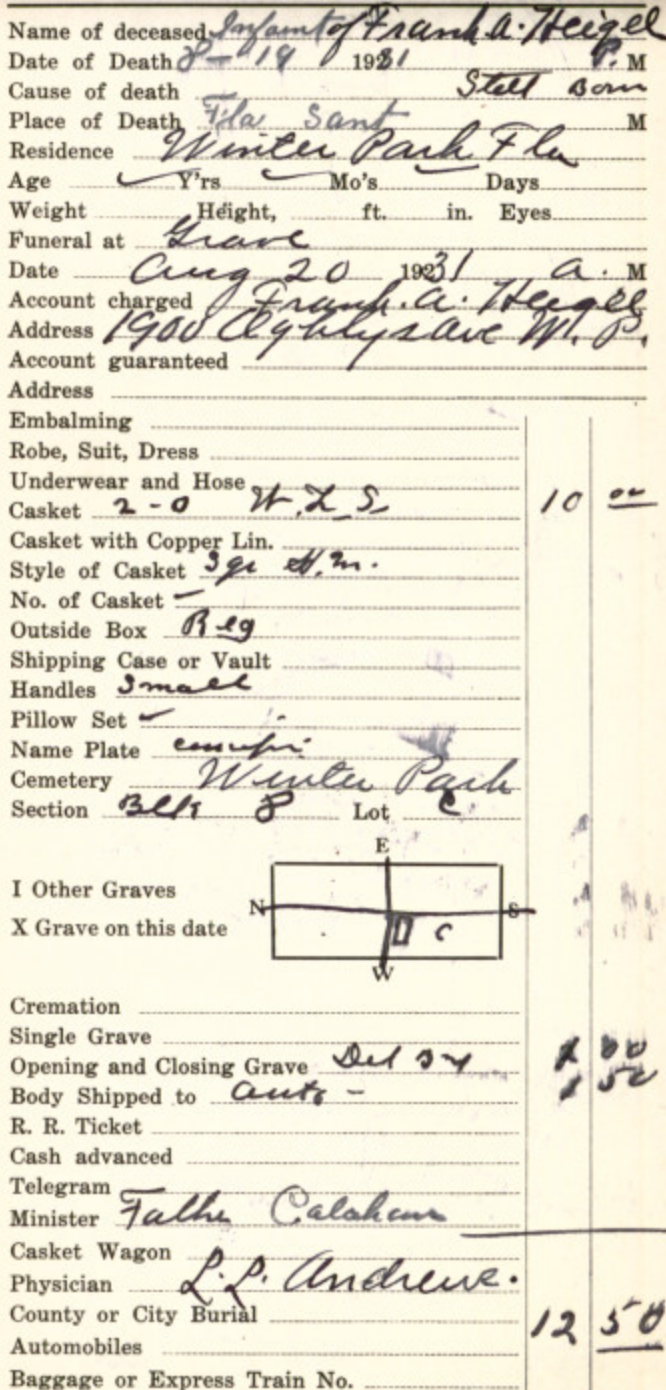 Name of deceased Infant of Frank A. Heigel
Date of Death 8 - 19 1931 P. M
Cause of death Still Born
Place of Death Fla Sant M
Residence Winter Park Fla
Age Y'rs Mo's Days
Weight Height, ft. in. Eyes
Funeral at Grave
Date Aug 20 1931 A. M
Account charged Frank. A. Heigel
Address 1900 ave W. P.
Account guaranteed
Address
Embalming
Robe, Suit, Dress
Underwear and Hose
Casket 2-0 W. L. S 10 00
Casket with Copper Lin.
Style of Casket
No. of Casket
Outside Box Reg
Shipping Case or Vault
Handles Small
Pillow Set
Name Plate
Cemetery Winter Park
Section Blk 8 Lot C
E
I Other Graves
N S
X Grave on this date C
W
Cremation
Single Grave
Opening and Closing Grave
Body Shipped to Auto - 50
R. R. Ticket
Cash advanced
Telegram
Minister Father Calahan
Casket Wagon
Physician L. L. Andrews.
County or City Burial 12 50
Automobiles
Baggage or Express Train No.